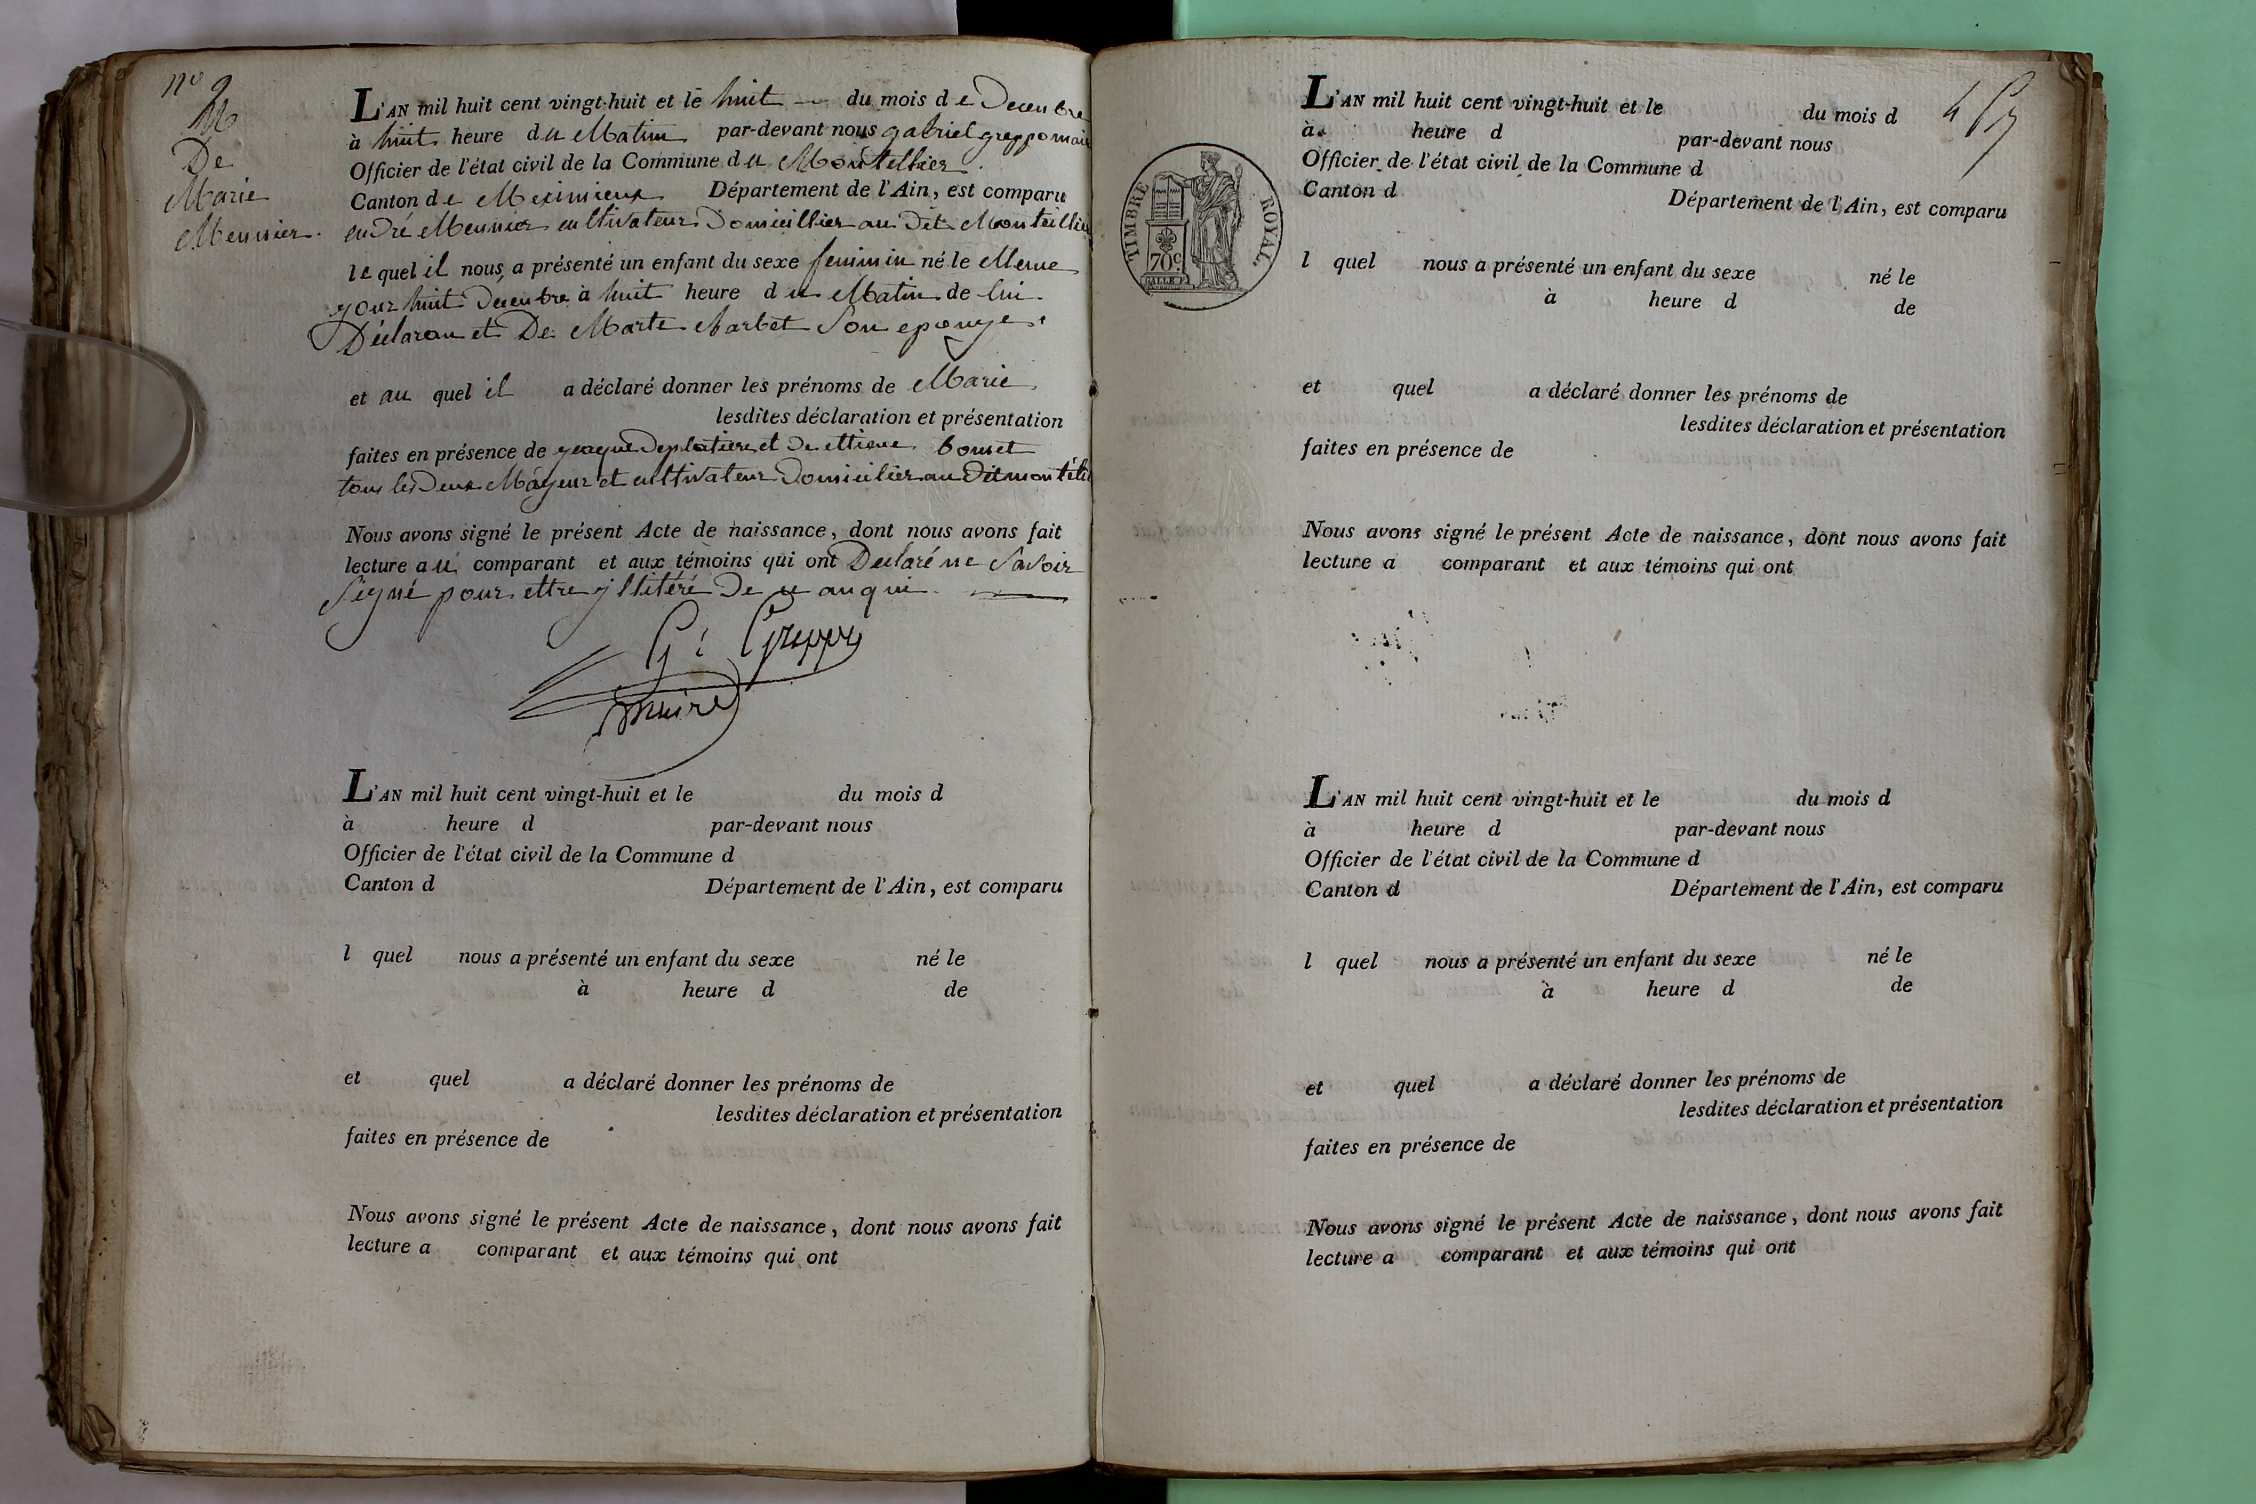 n° 9
N
De
Marie
Meunier.
L'AN mil huit cent vingt-huit et le huit du mois de Decenbre
à huit heure du Matin par-devant nous gabriel greppo maire
Officier de l'état civil de la Commune du Montellier.
Canton de Meximieux Département de l'Ain, est comparu
endré Meunier cultivateur Domicillier au Dit Monteillier
le quel il nous a présenté un enfant du sexe feminin né le Meme
jour huit Decenbre à huit heure du Matin de lui
Déclaran et De Marte Barbet Son epouse
et au quel il a déclaré donner les prénoms de Marie
lesdites déclaration et présentation
faites en présence de Deplatiere et De ettiene
tous les Deux Majeur et cultivateur Domicilier au Dit
Nous avons signé le présent Acte de naissance, dont nous avons fait
lecture au comparant et aux témoins qui ont Declaré ne Savoir
Signé pour ettre yllitéré De ce anquis
G. Greppo
maire
L'AN mil huit cent vingt-huit et le du mois d
à heure d par-devant nous
Officier de l'état civil de la Commune d
Canton d Département de l'Ain, est comparu
l quel nous a présenté un enfant du sexe né le
à heure d de
et quel a déclaré donner les prénoms de
lesdites déclaration et présentation
faites en présence de
Nous avons signé le présent Acte de naissance, dont nous avons fait
lecture a comparant et aux témoins qui ont
4
TIMBRE ROYAL.
70 c.
L'AN mil huit cent vingt-huit et le du mois d
à heure d par-devant nous
Officier de l'état civil de la Commune d
Canton d Département de l'Ain, est comparu
l quel nous a présenté un enfant du sexe né le
à heure d de
et quel a déclaré donner les prénoms de
lesdites déclaration et présentation
faites en présence de
Nous avons signé le présent Acte de naissance, dont nous avons fait
lecture a comparant et aux témoins qui ont
L'AN mil huit cent vingt-huit et le du mois d
à heure d par-devant nous
Officier de l'état civil de la Commune d
Canton d Département de l'Ain, est comparu
l quel nous a présenté un enfant du sexe né le
à heure d de
et quel a déclaré donner les prénoms de
lesdites déclaration et présentation
faites en présence de
Nous avons signé le présent Acte de naissance, dont nous avons fait
lecture a comparant et aux témoins qui ont